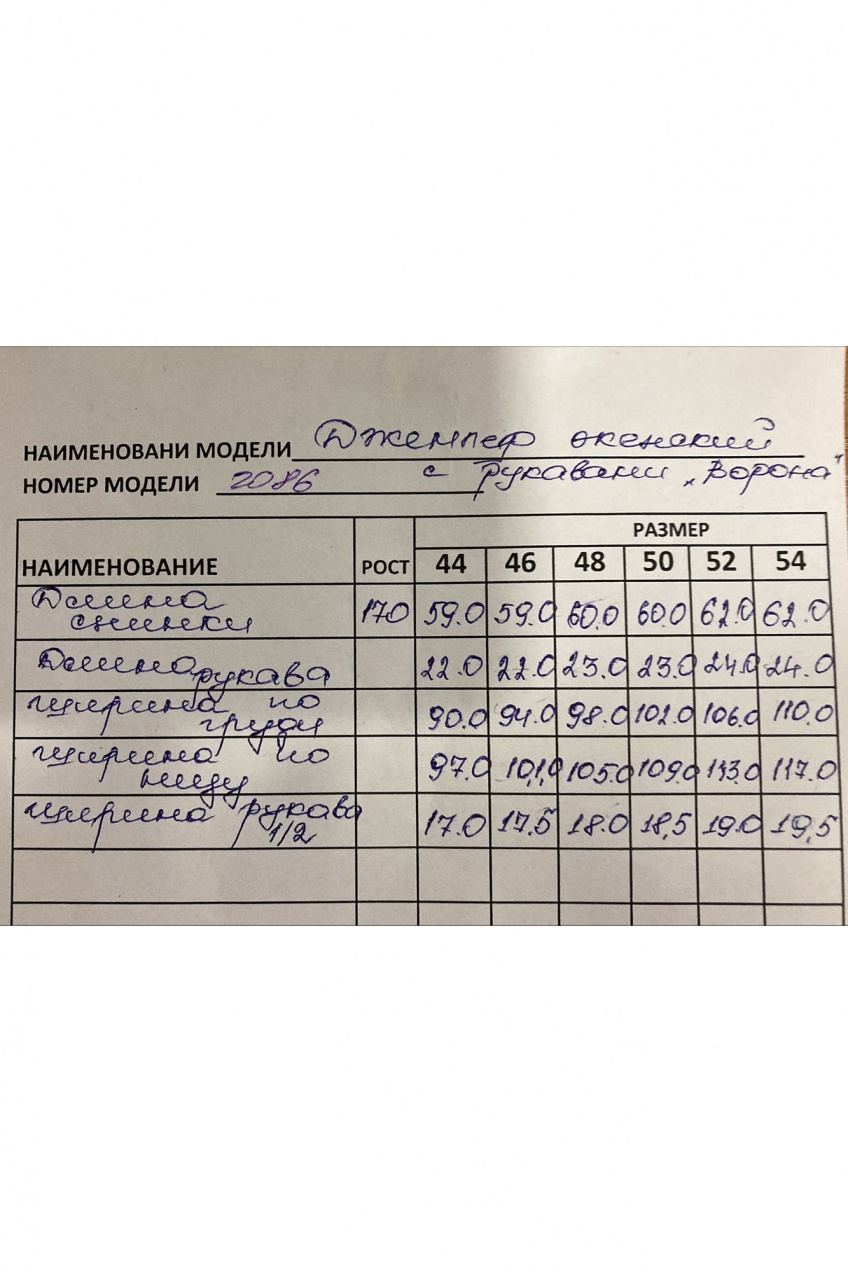 НАИМЕНОВАНИ МОДЕЛИ Джемпер женский
НОМЕР МОДЕЛИ 2086 с рукавами „Ворона"
РАЗМЕР
НАИМЕНОВАНИЕ РОСТ 44 46 48 50 52 54
Длина
спинки 170 59.0 59.0 60.0 60.0 62.0 62.0
Длина рукава 22.0 22.0 23.0 23.0 24.0 24.0
ширина по
груди 90.0 94.0 98.0 102.0 106.0 110.0
ширина по
низу 97.0 101,0 105.0 109.0 113.0 117.0
ширина рукава
1/2 17.0 17.5 18.0 18,5 19.0 19,5